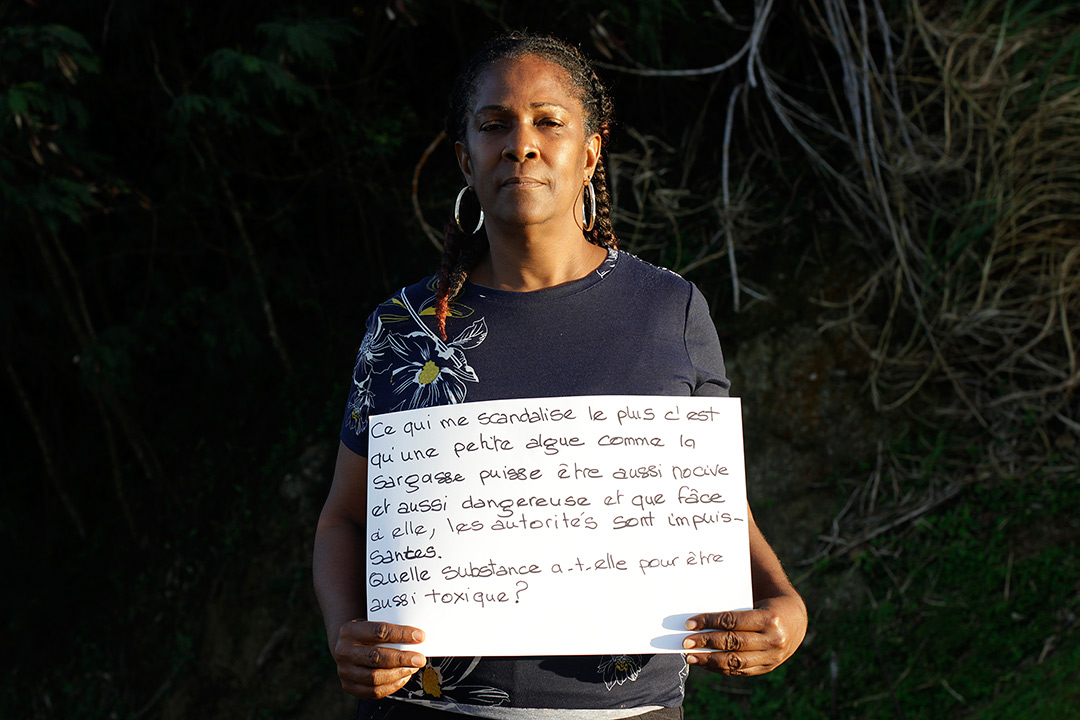 Ce qui me scandalise le plus c'est
qu'une petite algue comme la
sargasse puisse être aussi nocive
et aussi dangereuse et que fâce
à elle, les autorités sont impuis-
santes.
Quelle substance a-t-elle pour être
aussi toxique?